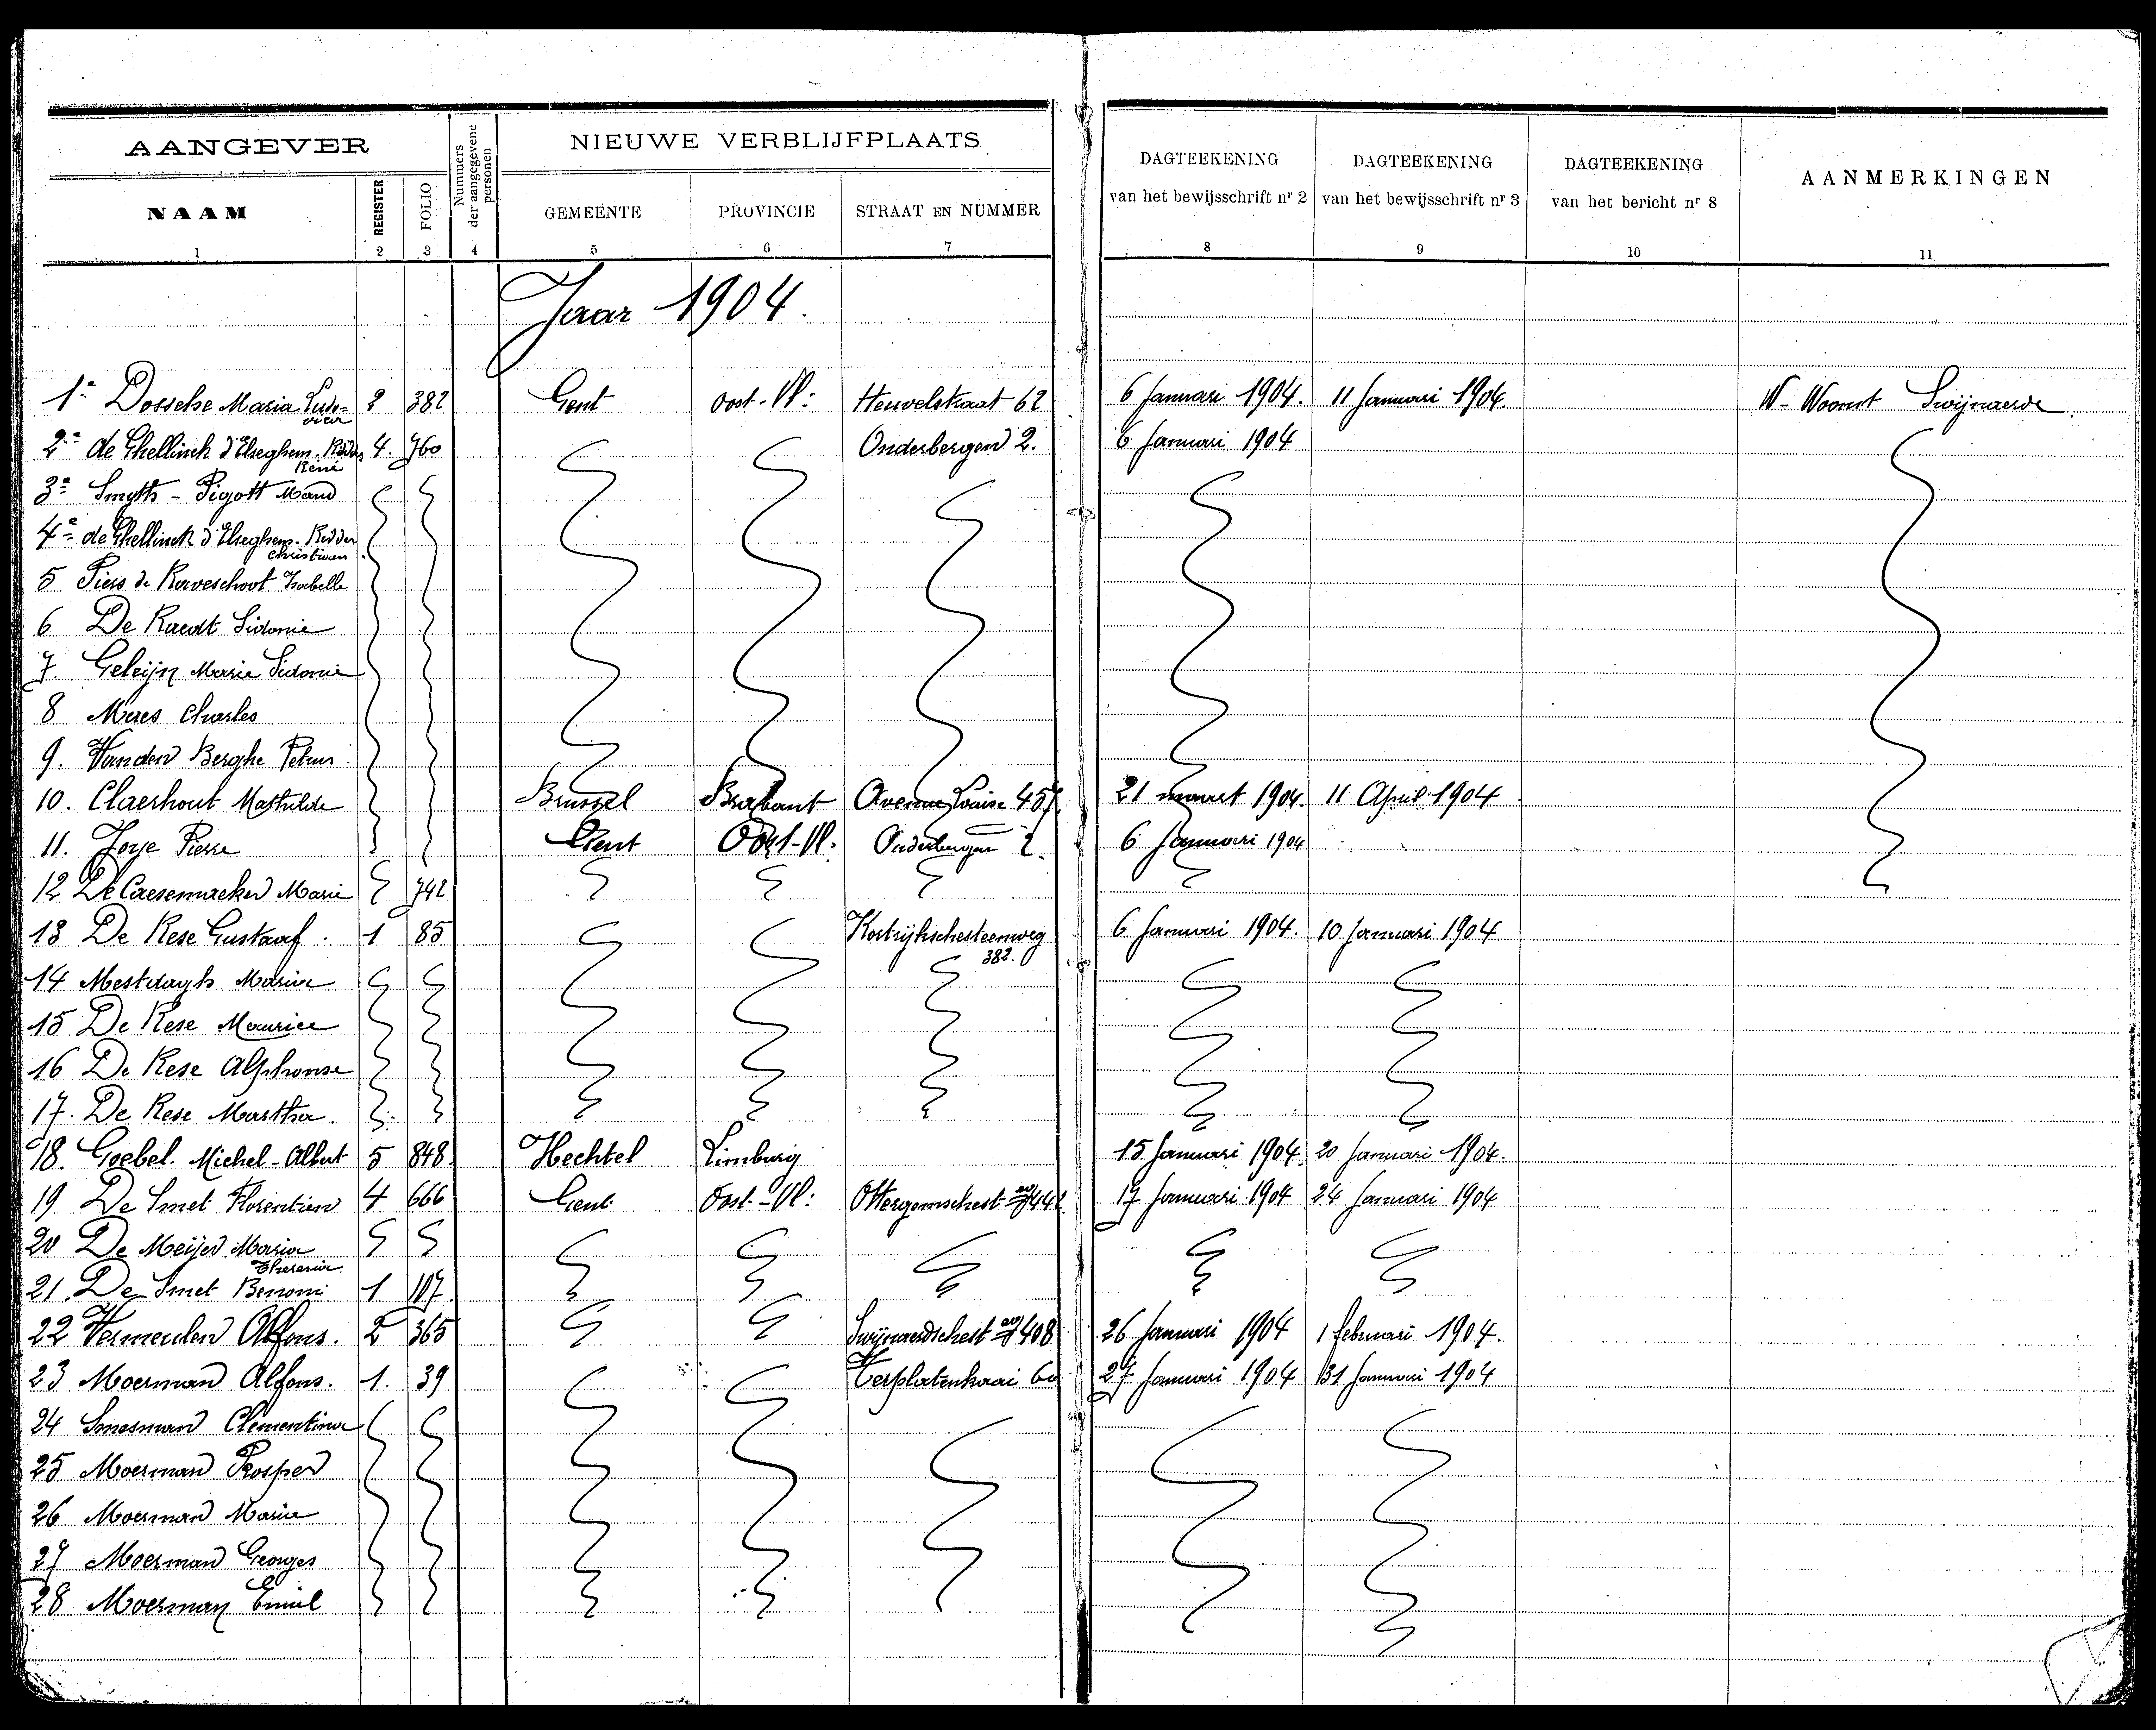 AANGEVER
Nummers der aangegevene personen
NIEUWE VERBLIJFPLAATS
DAGTEEKENING van het bewijsschrift nr 2
DAGTEEKENING van het bewijsschrift nr 3
DAGTEEKENING van het bericht nr 8
AANMERKINGEN
NAAM REGISTER FOLIO GEMEENTE PROVINCIE STRAAT EN NUMMER
1 2 3 4 5 6 7 8 9 10 11
Jaar 1904.
1e Dossche Maria Ludovica 2 382 Gent Oost-Vl: Heuvelstraat 62 6 Januari 1904. 11 Januari 1904. W- Woonst Swijnaerde.
2e de Ghellinck d'Elseghem. Ridder René 4. 760 Onderbergen 2. 6 Januari 1904
3e Smyth - Pigott Maud
4e de Ghellinck d'Elseghem. Ridder Christiaen
5 Piers de Raveschoot Isabelle
6 De Raedt Sidonie
7. Geleijn Marie Sidonie
8 Mees Charles
9. Van den Berghe Petrus.
10. Claerhout Mathilde Brussel Brabant Avenue Louise 457 21 maart 1904. 11 April 1904
11. Joye Pierre Gent Oost-Vl: Onderbergen 2. 6 Januari 1904
12 De Caesemaeker Marie 742
13 De Rese Gustaaf. 1 85 Kortrijkschesteenweg 382. 6 Januari 1904. 10 Januari 1904
14 Mestdagh Maria
15 De Rese Maurice
16 De Rese Alphonse
17. De Rese Martha.
18. Goebel. Michel-Albert 5 848. Hechtel Limburg 15 Januari 1904. 20 Januari 1904.
19 De Smet Florentien 4 666 Gent Oost-Vl: Ottergemschest 442 17 Januari 1904 24 Januari 1904
20 De Meijer Maria Theresia
21. De Smet Benoni 1 107
22 Vermeulen Alfons. 2 365 Swijnaerdschest 408 26 Januari 1904 1 februari 1904.
23 Moerman Alfons. 1. 39 Verplatenkaai 60 27 Januari 1904 31 Januari 1904
24 Smesman Clementina
25 Moerman Prosper
26 Moerman Maria
27 Moerman Georges
28 Moerman Emiel